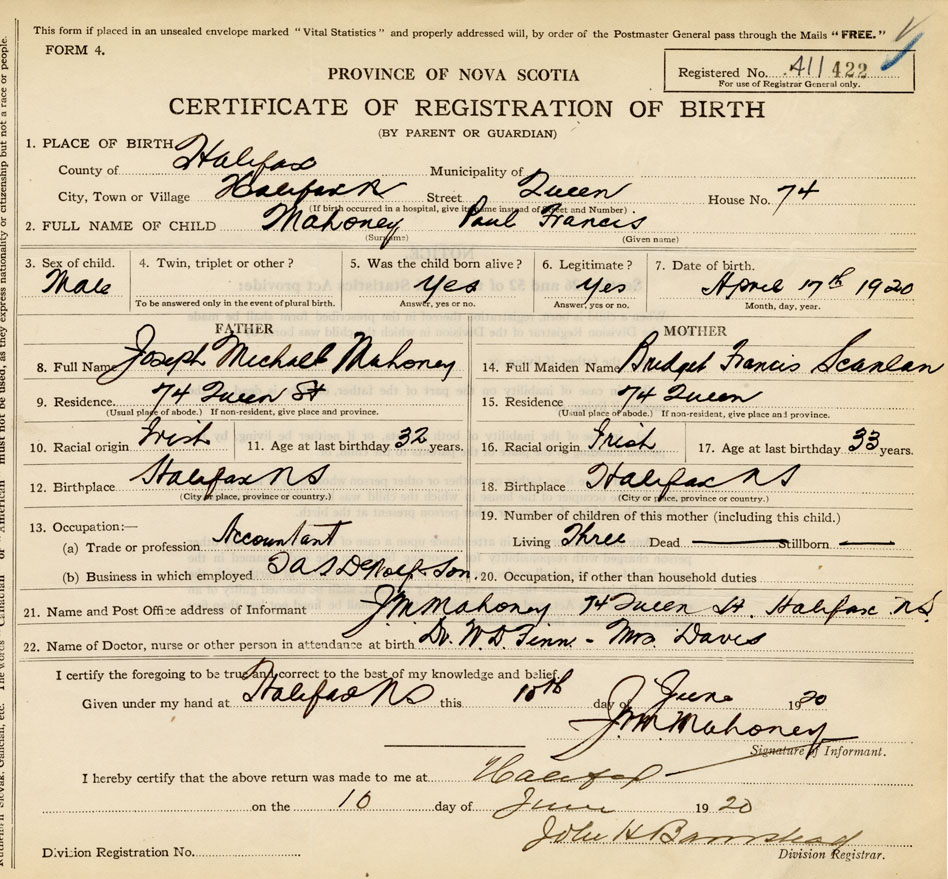 This form if placed in an unsealed envelope marked "Vital Statistics" and properly addressed will, by order of the Postmaster General pass through the Mails "FREE."
FORM 4.
PROVINCE OF NOVA SCOTIA
Registered No. 411 422
For use of Registrar General only.
CERTIFICATE OF REGISTRATION OF BIRTH
(BY PARENT OR GUARDIAN)
1. PLACE OF BIRTH
County of Halifax Municipality of
City, Town or Village Halifax Street Queen House No. 74
(If birth occurred in a hospital, give its name instead of Street and Number)
2. FULL NAME OF CHILD Mahoney Paul Francis
(Surname) (Given name)
3. Sex of child. 4. Twin, triplet or other? 5. Was the child born alive? 6. Legitimate? 7. Date of birth.
Male Yes Yes April 17th 1920
To be answered only in the event of plural birth. Answer, yes or no. Answer, yes or no. Month, day, year.
FATHER MOTHER
8. Full Name Joseph Michael Mahoney 14. Full Maiden Name Bridget Francis Scanlan
9. Residence 74 Queen St 15. Residence 74 Queen
(Usual place of abode.) If non-resident, give place and province. (Usual place of abode.) If non-resident, give place and province.
10. Racial origin Irish 11. Age at last birthday 32 years. 16. Racial origin Irish 17. Age at last birthday 33 years.
12. Birthplace Halifax NS 18. Birthplace Halifax NS
(City or place, province or country.) (City or place, province or country.)
13. Occupation:— 19. Number of children of this mother (including this child.)
(a) Trade or profession Accountant Living Three Dead Stillborn
(b) Business in which employed DeWolf & Son. 20. Occupation, if other than household duties
21. Name and Post Office address of Informant J M Mahoney 74 Queen St. Halifax NS
22. Name of Doctor, nurse or other person in attendance at birth Dr. W. D. Finn - Mrs Davis
I certify the foregoing to be true and correct to the best of my knowledge and belief.
Given under my hand at Halifax NS this 10th day of June 1920
J.M. Mahoney
Signature of Informant.
I hereby certify that the above return was made to me at Halifax
on the 10 day of June 1920
John H Barnstead
Division Registrar.
Division Registration No.